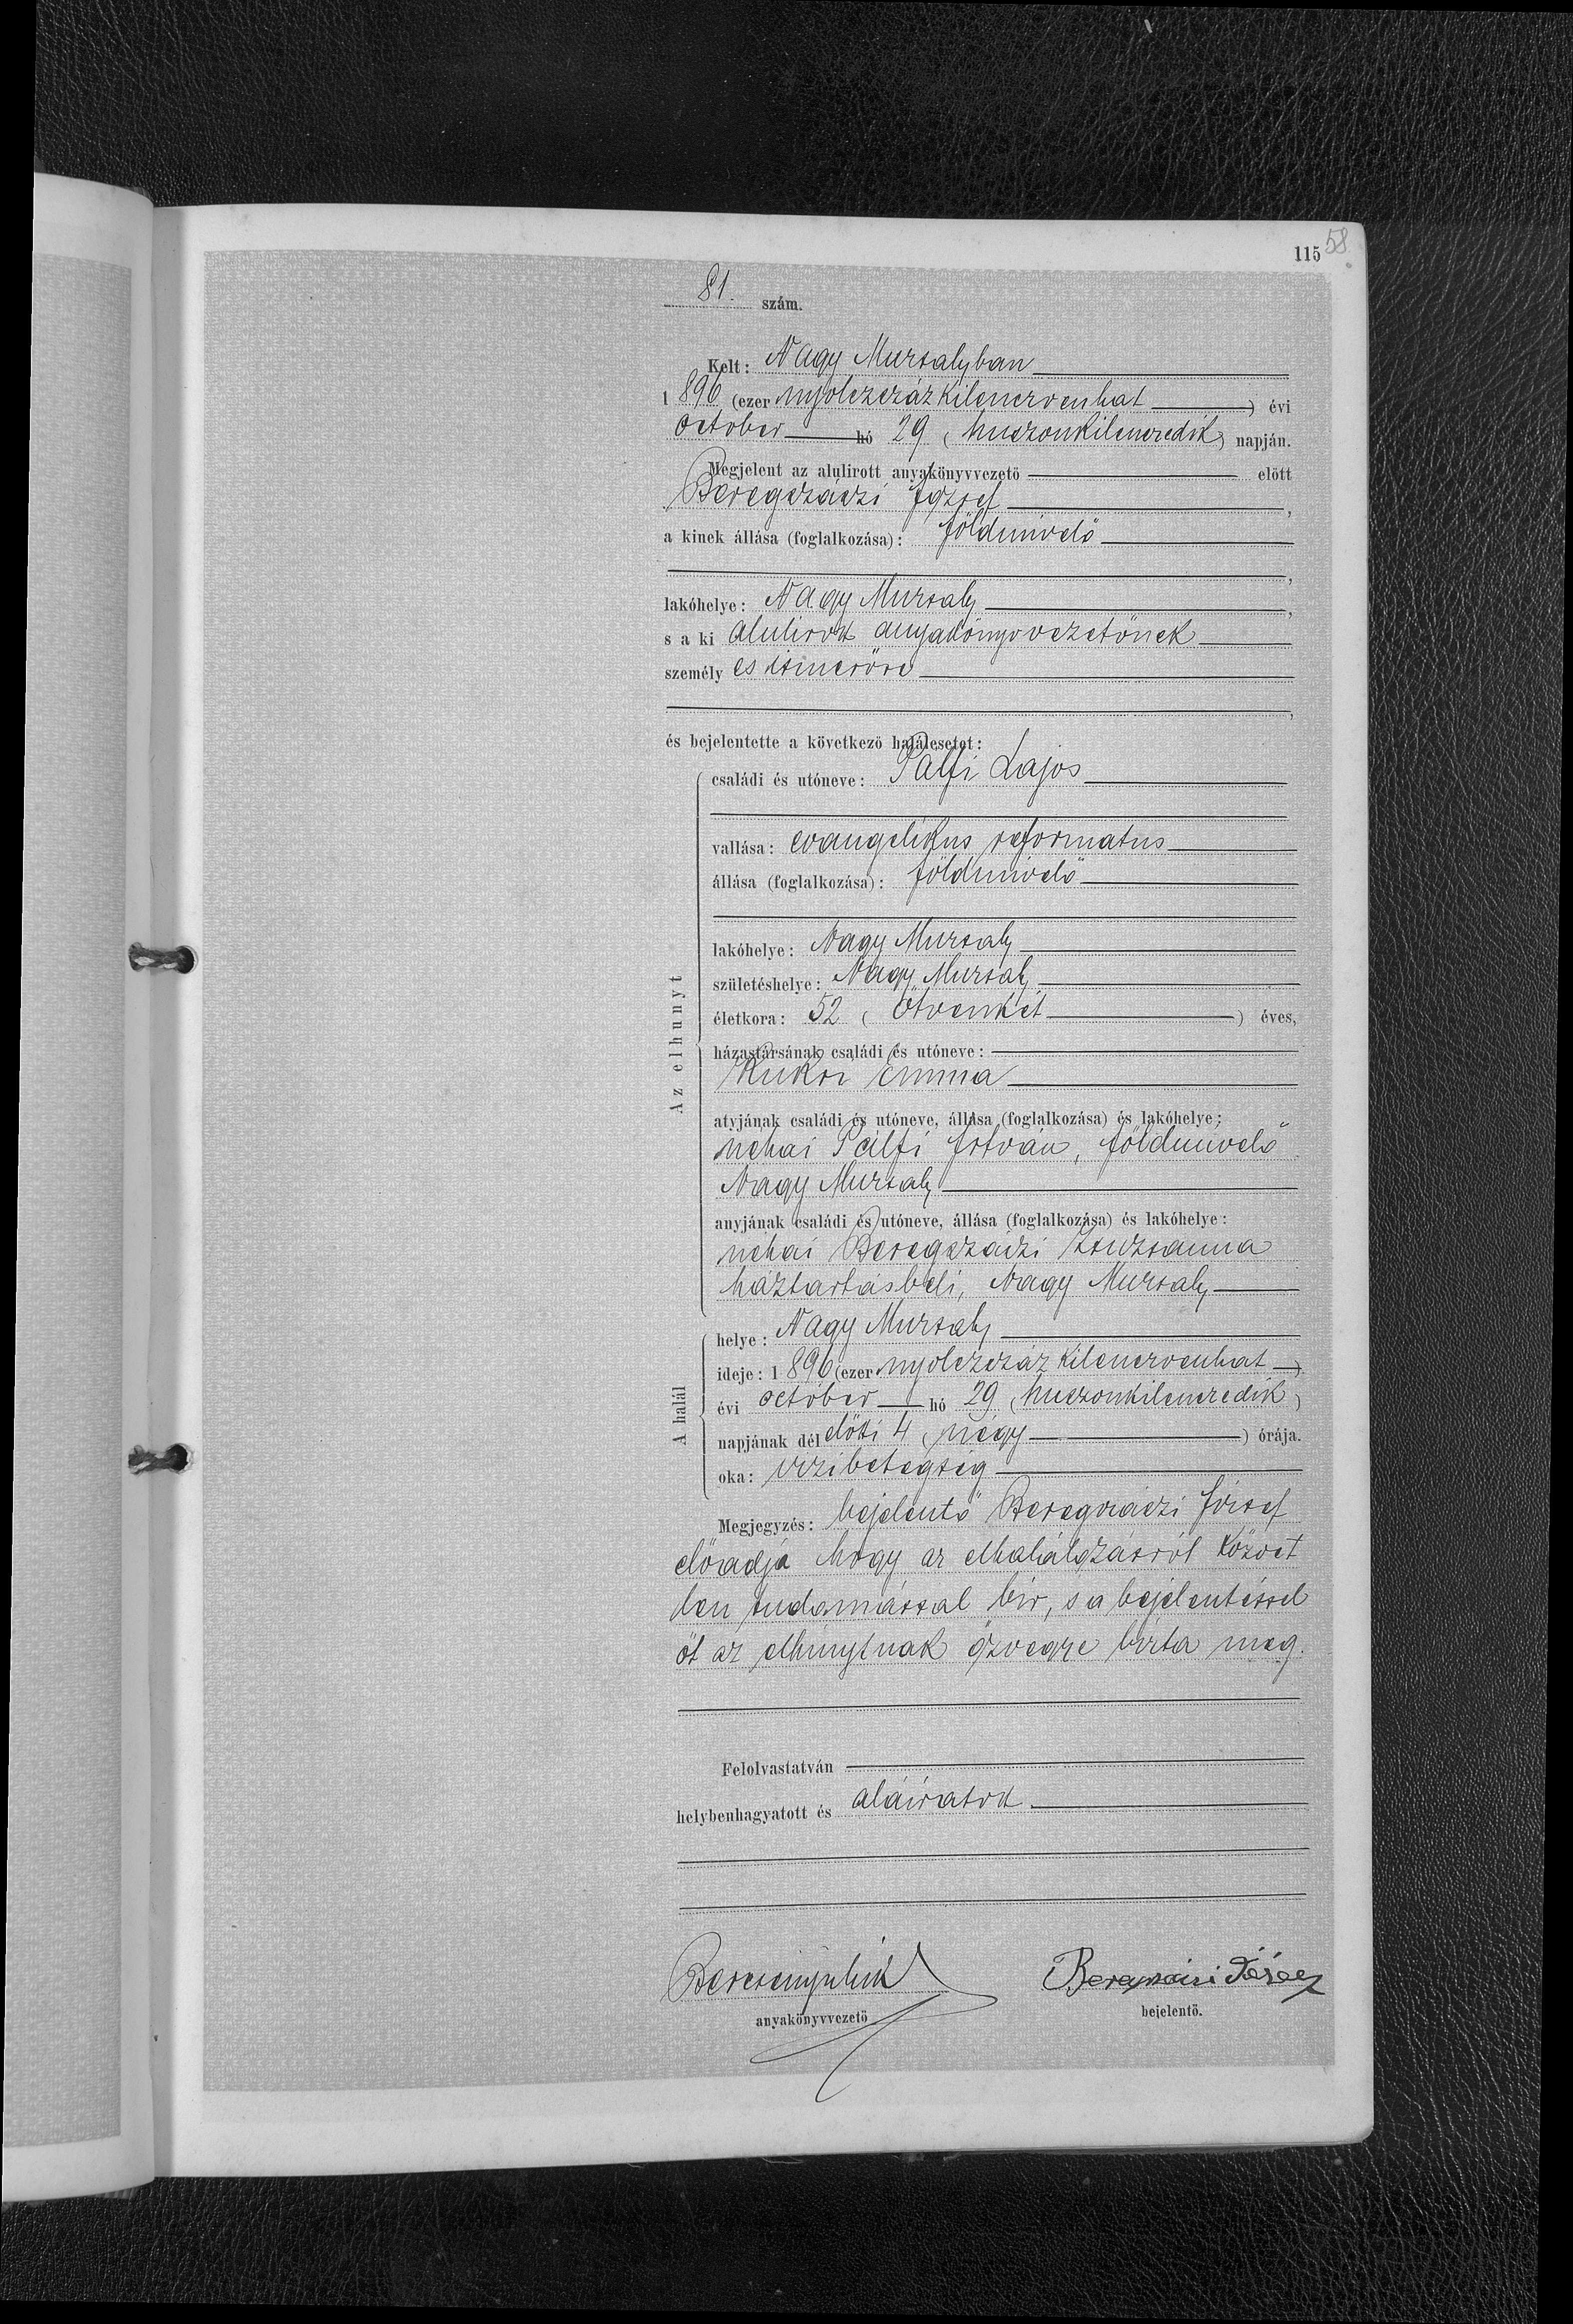 115 58.
81. szám.
Kelt: Nagy Muzsalyban
1 896 (ezer nyolczszázkilenczvenhat) évi
october hó 29 (huszonkilenczedik) napján.
Megjelent az alulirott anyakönyvvezető előtt
Beregszászi József,
a kinek állása (foglalkozása): földmivelő
,
lakóhelye: Nagy Muzsaly,
s a ki alulirott anyakönyvvezetőnek
személyes ismerőse
,
és bejelentette a következő halálesetet:
Az elhunyt
családi és utóneve: Pálfi Lajos
vallása: evangelikus reformatus
állása (foglalkozása): földmivelő
lakóhelye: Nagy Muzsaly
születéshelye: Nagy Muzsaly
életkora: 52 (Ötvenkét) éves,
házastársának családi és utóneve:
Kukor Emma
atyjának családi és utóneve, állása (foglalkozása) és lakóhelye:
néhai Pálfi István, földmivelő
Nagy Muzsaly
anyjának családi és utóneve, állása (foglalkozása) és lakóhelye:
néhai Beregszászi Zsuzsanna
háztartásbeli, Nagy Muzsaly
A halál
helye: Nagy Muzsaly
ideje: 1 896 (ezer nyolczszáz kilenczvenhat)
évi october hó 29 (huszonkilenczedik)
napjának délelőtti 4 (négy) órája.
oka: vizibetegség
Megjegyzés: bejelentő Beregszászi József
előadja hogy az elhalálozásról közvet
len tudomással bir, s a bejelentéssel
őt az elhunytnak özvegye bizta meg.
Felolvastatván
helybenhagyatott és aláiratott
anyakönyvvezető
Beregszászi József
bejelentő.